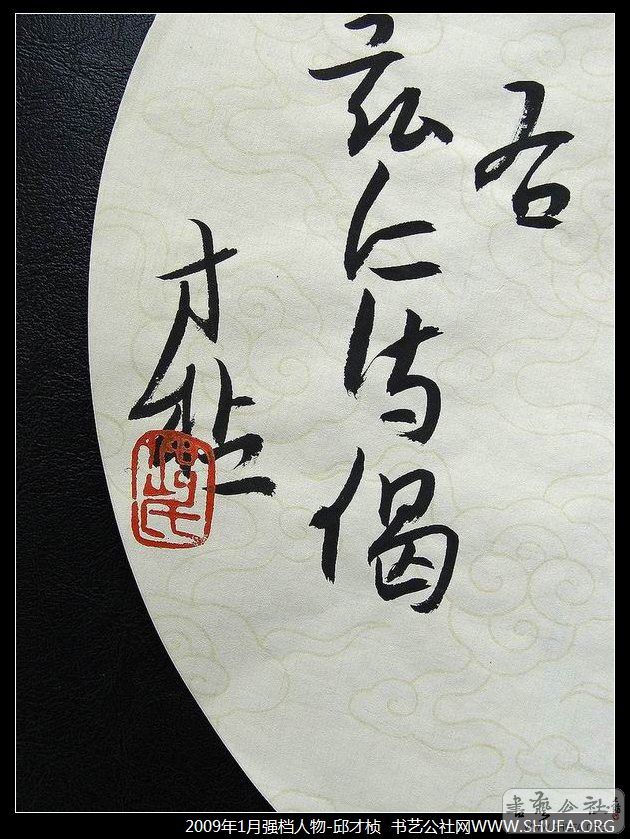 右
仁诗偈
才桢
氏
书艺公社
2009年1月强档人物-邱才桢 书艺公社网WWW.SHUFA.ORG